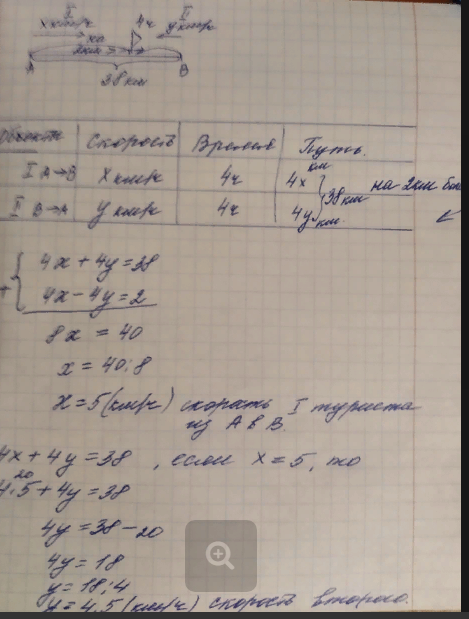 I 4ч II
x км/ч y км/ч
на
2км >
A B
38 км
Объекты Скорость Время Путь
I A→B x км/ч 4ч 4x км
38 км на 2км
II B→A y км/ч 4ч 4y км
4x + 4y = 38
+
4x – 4y = 2
8x = 40
x = 40:8
x = 5 (км/ч) скорость I туриста
из A в B.
4x + 4y = 38 , если x = 5, то
20
4·5 + 4y = 38
4y = 38 – 20
4y = 18
y = 18:4
y = 4,5 (км/ч) скорость второго.